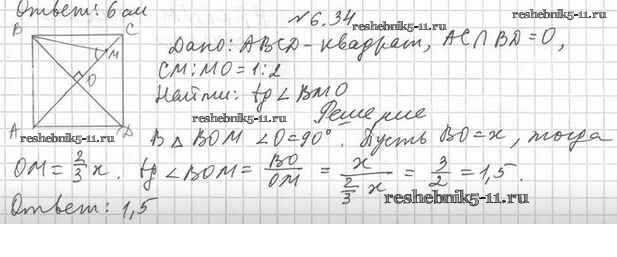 Ответ: 6 см
№ 6.34
reshebnik5-11.ru
reshebnik5-11.ru
B C
M
O
A D
Дано: ABCD - квадрат, AC∩BD=O,
CM:MO=1:2
Найти: tg∠BMO
reshebnik5-11.ru
Решение
reshebnik5-11.ru
В △ BOM ∠O=90°. Пусть BO=x, тогда
OM=2/3 x. tg∠BOM = BO/OM = x/(2/3 x) = 3/2 = 1,5.
reshebnik5-11.ru
Ответ: 1,5